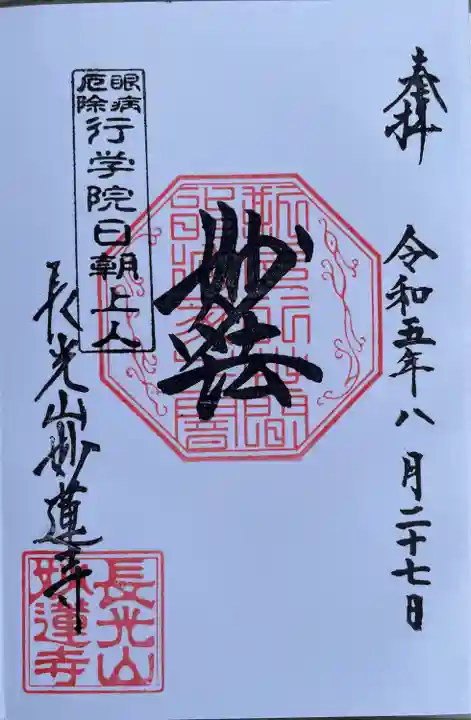 奉拝
令和五年八月二十七日
妙法
眼病
厄除
行学院日朝上人
長光山妙蓮寺
長光山
妙蓮寺